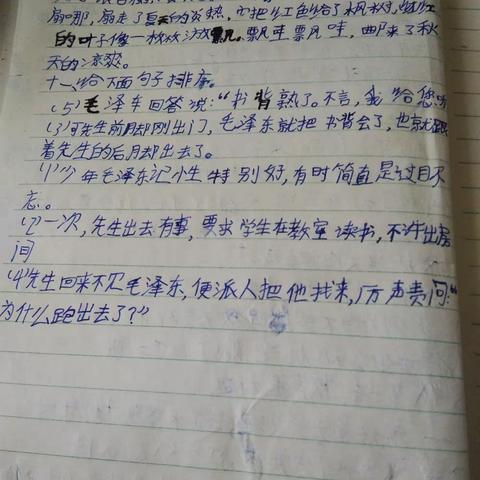 扇哪,扇走了夏天的炎热,它把红色给了枫树,红红
的叶子像一枚枚邮票,飘哇飘哇,邮来了秋
天的凉爽。
十一、给下面句子排序。
(5)毛泽东回答说:“书背熟了。不信,我给您听
(3)可先生前脚刚出门,毛泽东就把书背会了,也就跟
着先生的后脚出去了。
(1)少年毛泽东记性特别好,有时简直是过目不
忘。
(2)一次,先生出去有事,要求学生在教室读书,不许出房
间
(4)先生回来不见毛泽东,便派人把他找来,厉声责问:“
为什么跑出去了?”